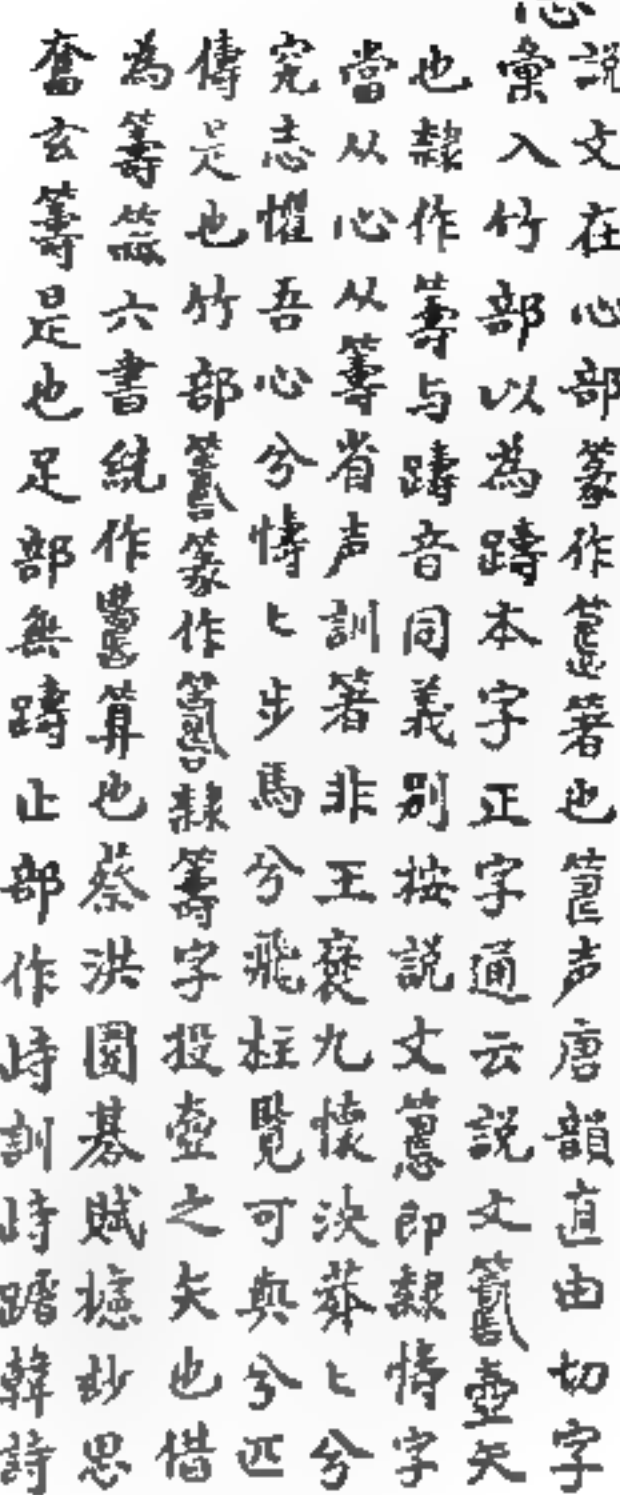 心
説文在心部篆作著也声唐韻直由切字
彙入竹部以為躊本字正字通云説文壺矢
也隸作籌与躊音同義別按説文即隸懤字
當从心从籌省声訓箸非王褒九懷決莽〻兮
究志懼吾心兮懤〻步馬兮飛柱覽可與兮匹
儔是也竹部篆作隸籌字投壺之矢也借
為籌筭六書統作算也蔡洪圍棊賦攄妙思
奮玄籌是也足部無躊止部作峙訓峙踞韓詩